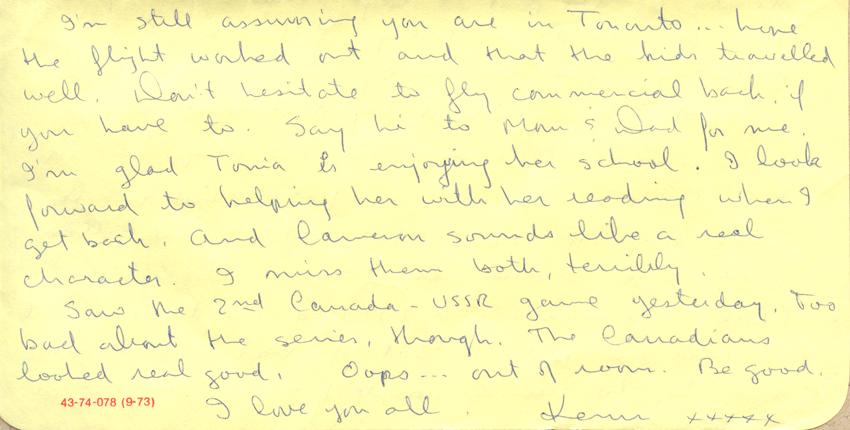 I'm still assuming you are in Toronto... hope
the flight worked out and that the kids travelled
well. Don't hesitate to fly commercial back, if
you have to. Say hi to Mom & Dad for me.
I'm glad Tonia is enjoying her school. I look
forward to helping her with her reading when I
get back. And Cameron sounds like a real
character. I miss them both, terribly.
Saw the 2nd Canada - USSR game yesterday. Too
bad about the series, though. The Canadians
looked real good. Oops... out of room. Be good.
43-74-078 (9-73)
I love you all. Kenn xxxxx